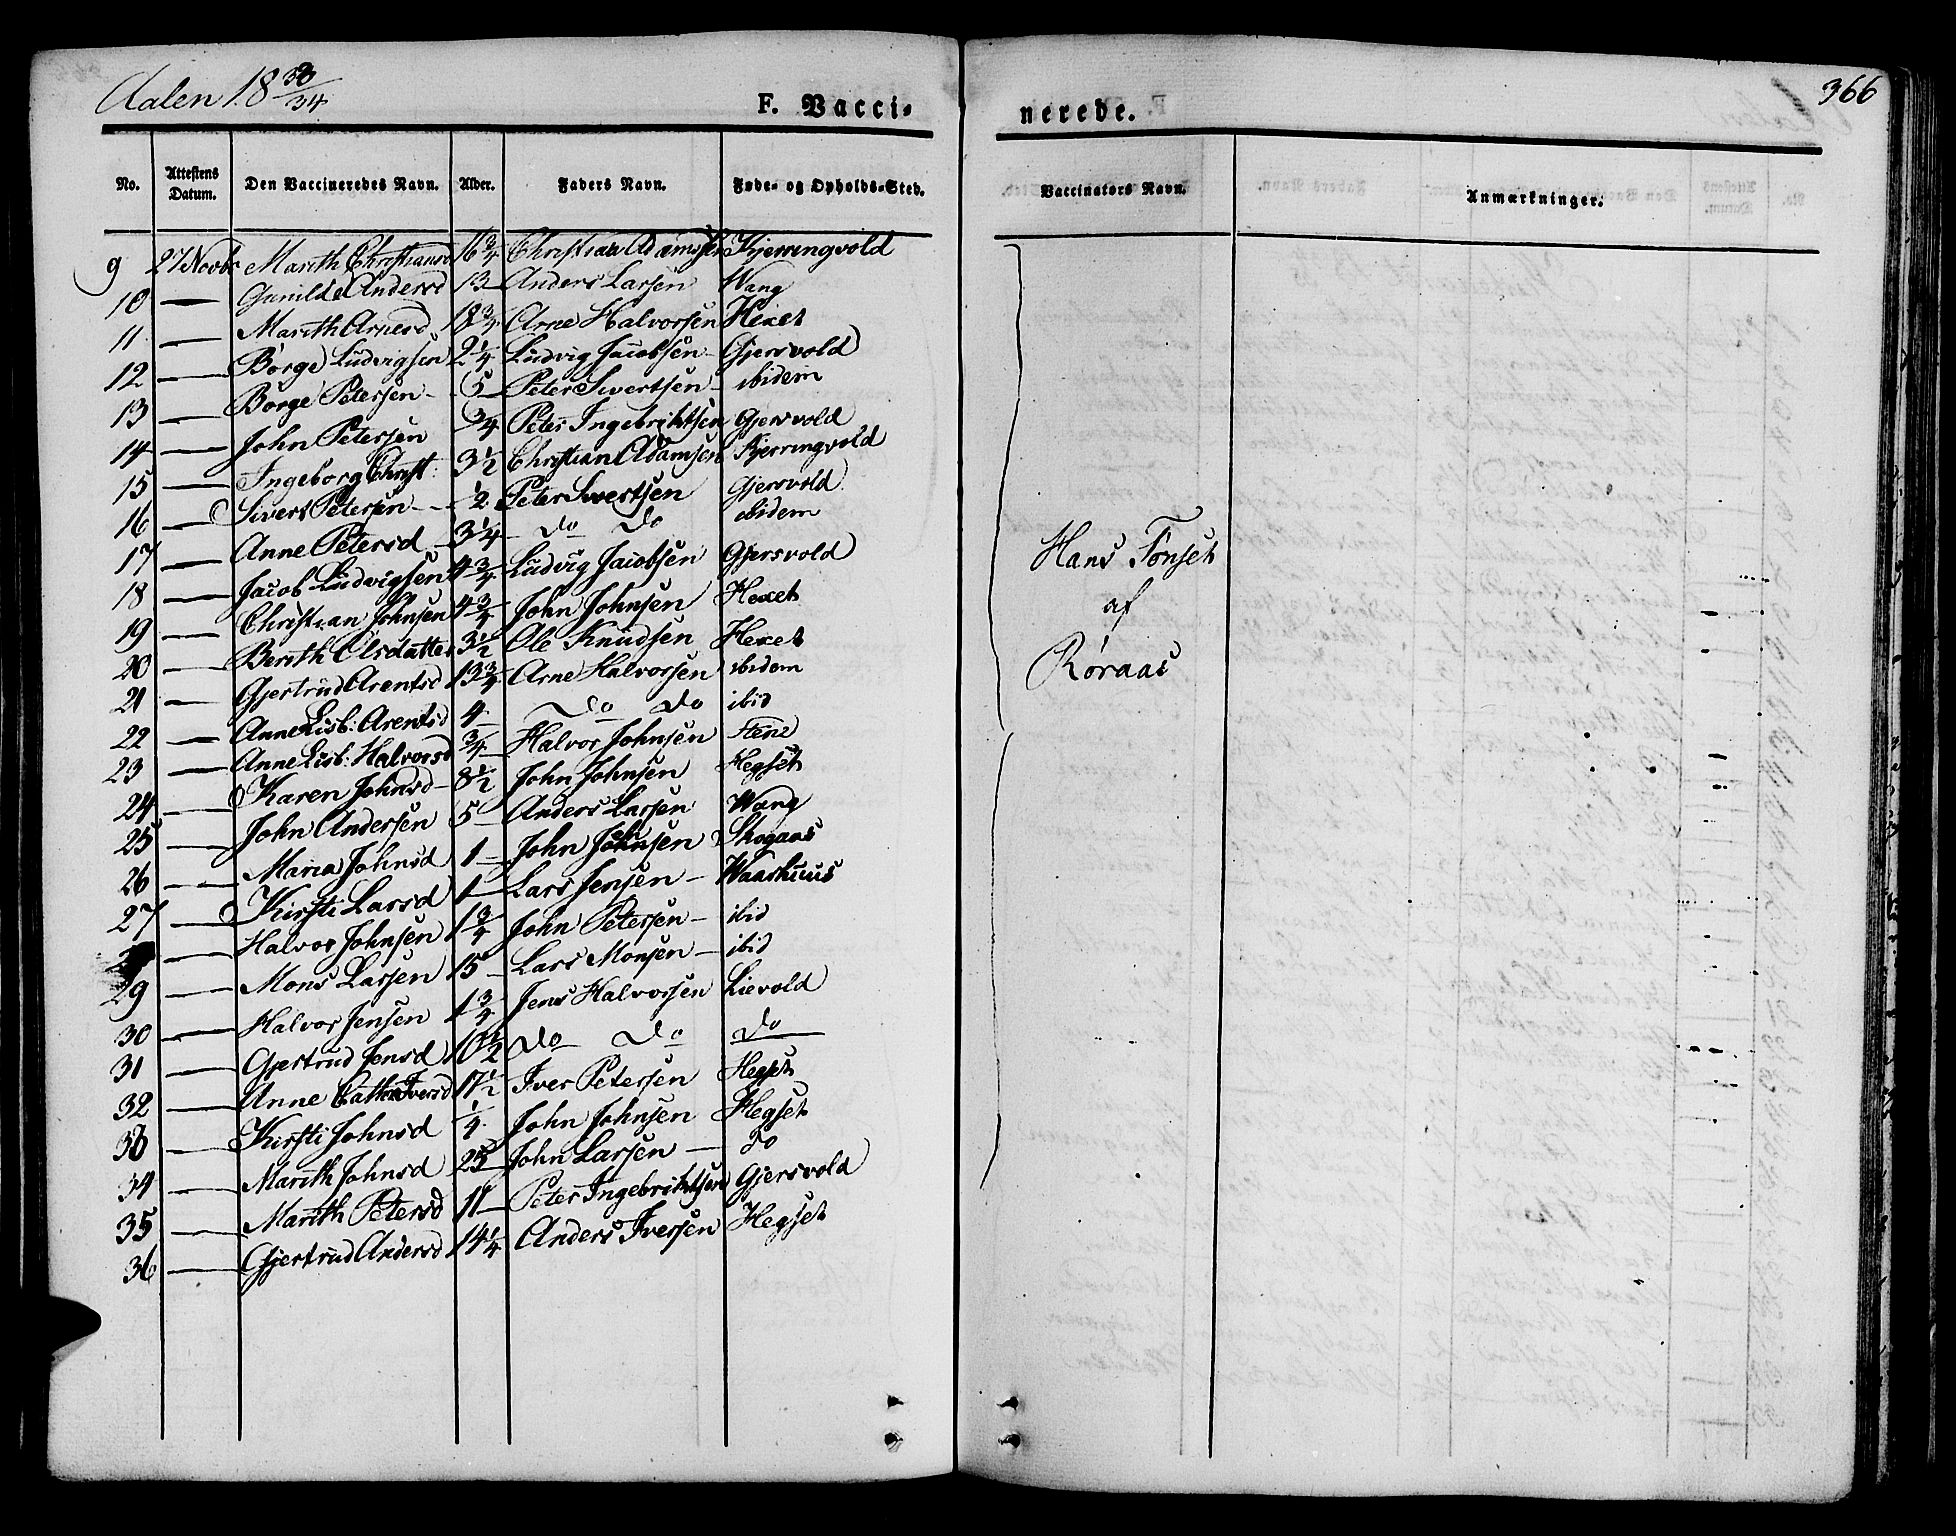 Aalen 18 33/34
F. Vacci-
nerede.
366
No. Attestens Datum. Den Vaccineredes Navn. Alder. Faders Navn. Føde- og Opholds-Sted. Vaccinators Navn. Anmærkninger.
9 27 Novbr Marith Christiansd 16 3/4 Christian Adamsen Kjerringvold
10 — Gunild Andersd 13 — Anders Larsen Wang
11 — Marith Arnesd 18 3/4 Arne Halvorsen Hexet
12 — Börge Ludvigsen 2 1/4 Ludvig Jacobsen — Gjersvold
13 — Borge Petersen — 5 — Peter Sivertsen — ibidem
14 — John Petersen 3/4 Peter Ingebriktsen Gjersvold
15 — Ingeborg Christ: 3 1/2 Christian Adamsen Kjerringvold
16 — Sivert Petersen — 1/2 Peter Sivertsen Gjersvold
17 — Anne Petersd 3 1/4 — Do Do ibidem
18 — Jacob Ludvigsen 4 3/4 Ludvig Jacobsen Gjersvold
19 — Christian Johnsen 4 3/4 John Johnsen Hexet
20 — Berith Olsdatter 3 1/2 Ole Knudsen Hexet
21 — Gjertrud Arentsd 13 3/4 Arne Halvorsen ibidem
22 — Anne Lisb: Arentsd 4 — Do Do ibid
23 — Anne Lisb: Halvorsd 3/4 Halvor Johnsen Stene
24 — Karen Johnsd — 8 1/2 John Johnsen Hegset
25 — John Andersen 5 — Anders Larsen Wang
26 — Maria Johnsd 1 — John Johnsen Skogaas
27 — Kirsti Larsd 1 — Lars Jensen — Waarhuus
— Halvor Johnsen 1 3/4 John Petersen — ibid
29 — Mons Larsen 15 — Lars Monsen — ibid
30 — Halvor Jensen 1 3/4 Jens Halvorsen Lievold
31 — Gjertrud Jensd 10 1/2 Do Do Do
32 — Anne Cathr Iversd 17 1/2 Iver Petersen Hegset
33 — Kirsti Johnsd 1/4 John Johnsen Hegset
34 — Marith Johnsd 25 John Larsen — Do
35 — Marith Petersd 11 — Peter Ingebriktsen Gjersvold
36 — Gjertrud Andersd 14 1/4 Anders Iversen Hegset
Hans Tønset
af
Røraas